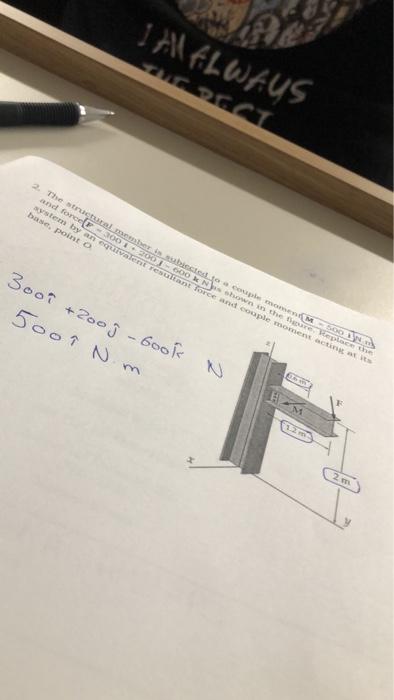 I AM ALWAYS
THE BEST
2. The structural member is subjected to a couple moment M = 500 i N.m
and force F = 300 i + 200 j - 600 k N as shown in the figure. Replace the
system by an equivalent resultant force and couple moment acting at its
base, point O.
300î + 200ĵ - 600k̂ N
500î N.m
z
0.6 m
F
M
1.2 m
2 m
x
y